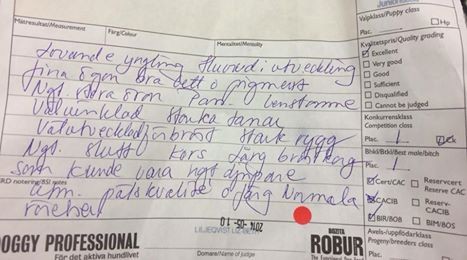 Juniorklass
Valpklass/Puppy class
Plac. Hp
Kvalitetspris/Quality grading
Excellent
Very good
Good
Sufficient
Disqualified
Cannot be judged
Konkurrensklass
Competition class
Plac. 1 Ck
Bhkl/Btkl/Best male/bitch
Plac. 1
Cert/CAC Reservcert Reserve CAC
CACIB Reserv-CACIB
BIR/BOB BIM/BOS
Avels-/uppfödarklass
Progeny/breeders class
Mätresultat/Measurement Färg/Colour Mentalitet/Mentality
Lovande yngling huvud i utveckling
fina ögon bra bett o pigment
Ngt stora öron benstomme
Välvinklad starka tanar
Välutvecklad förbröst stark rygg
Ngt slutt kors lång bröstkorg
som kunde vara ngt djupare
utm. pälskvalité o färg Normala
rörelser
2014 -05- 10
LILJEQVIST LIZ-BETH
Domare/Name of judge
DOGGY PROFESSIONAL
För det aktiva hundlivet
BOZITA
ROBUR